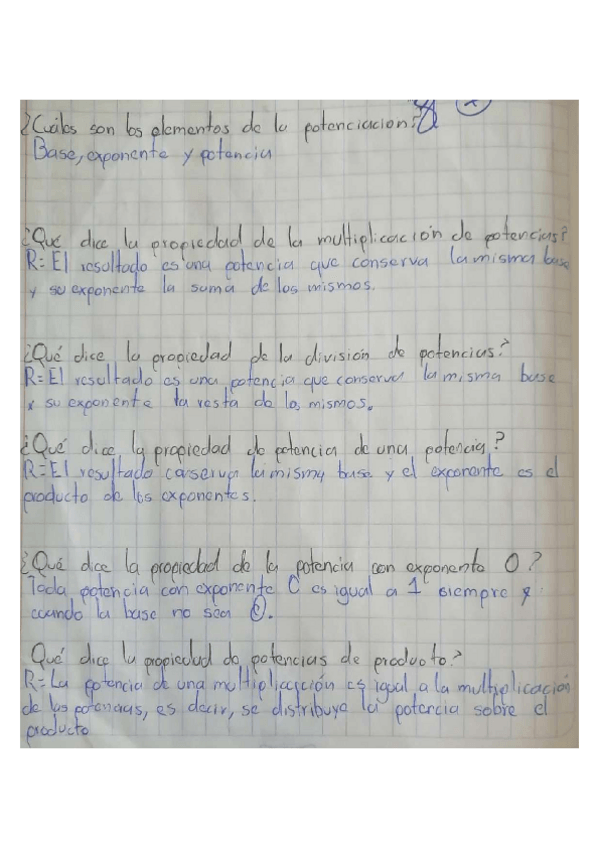 ¿Cuáles son los elementos de la potenciacion?
Base, exponente y potencia
¿Qué dice la propiedad de la multiplicación de potencias?
R= El resultado es una potencia que conserva la misma base
y su exponente la suma de los mismos.
¿Qué dice la propiedad de la división de potencias?
R= El resultado es una potencia que conserva la misma base
y su exponente la resta de los mismos.
¿Qué dice la propiedad de potencia de una potencia?
R= El resultado conserva la misma base y el exponente es el
producto de los exponentes.
¿Qué dice la propiedad de la potencia con exponente 0?
Toda potencia con exponente 0 es igual a 1 siempre y
cuando la base no sea 0.
Qué dice la propiedad de potencias de producto?
R= La potencia de una multiplicación es igual a la multiplicación
de las potencias, es decir, se distribuye la potencia sobre el
producto